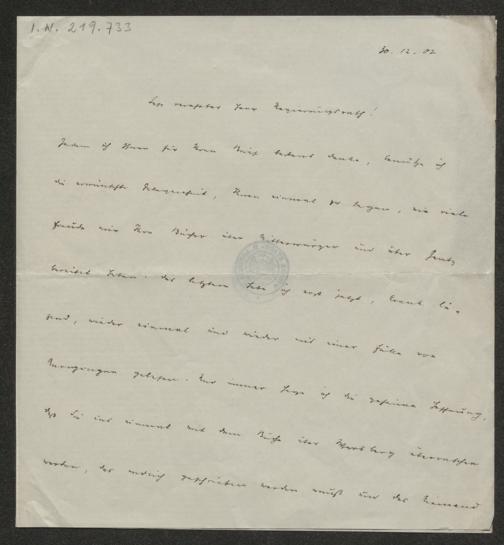 I.N. 219.733
30.12.02
Sehr verehrter Herr Regierungsrath!
Indem ich Ihnen für Ihren Brief bestens danke, benütze ich
die erwünschte Gelegenheit, Ihnen einmal zu sagen, wie viele
Freude mir Ihre Bücher über Mitterwurzer und über Gentz
bereitet haben. Das letztere habe ich erst jetzt, krank lie-
gend, wieder einmal und wieder mit einer Fülle von
Anregungen gelesen. Nur immer hege ich die geheime Hoffnung,
daß Sie uns einmal mit dem Buche über überraschen
werden, das endlich geschrieben werden muß und das Niemand